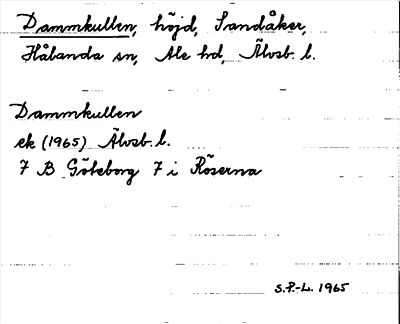 Dammkullen, höjd, Sandåker,
Hålanda sn, Ale hd, Älvsb. l.
Dammkullen
ek (1965) Älvsb. l.
7 B Göteborg 7 i Röserna
S.P.-L. 1965